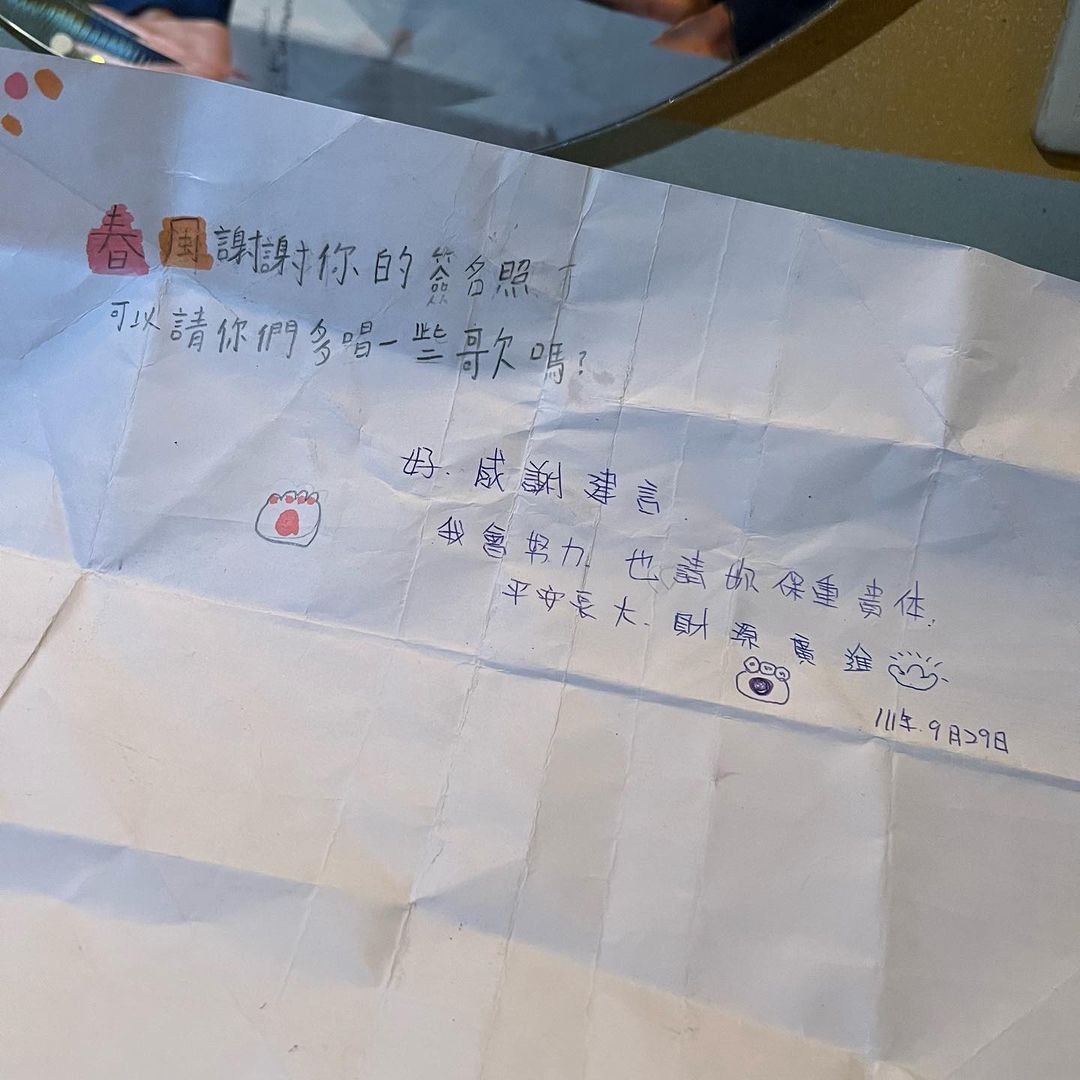 春風謝謝你的簽名照
可以請你們多唱一些歌嗎?
好. 感謝建言.
我會努力. 也請妳保重貴体.
平安長大. 財源廣進
111年.9月29日